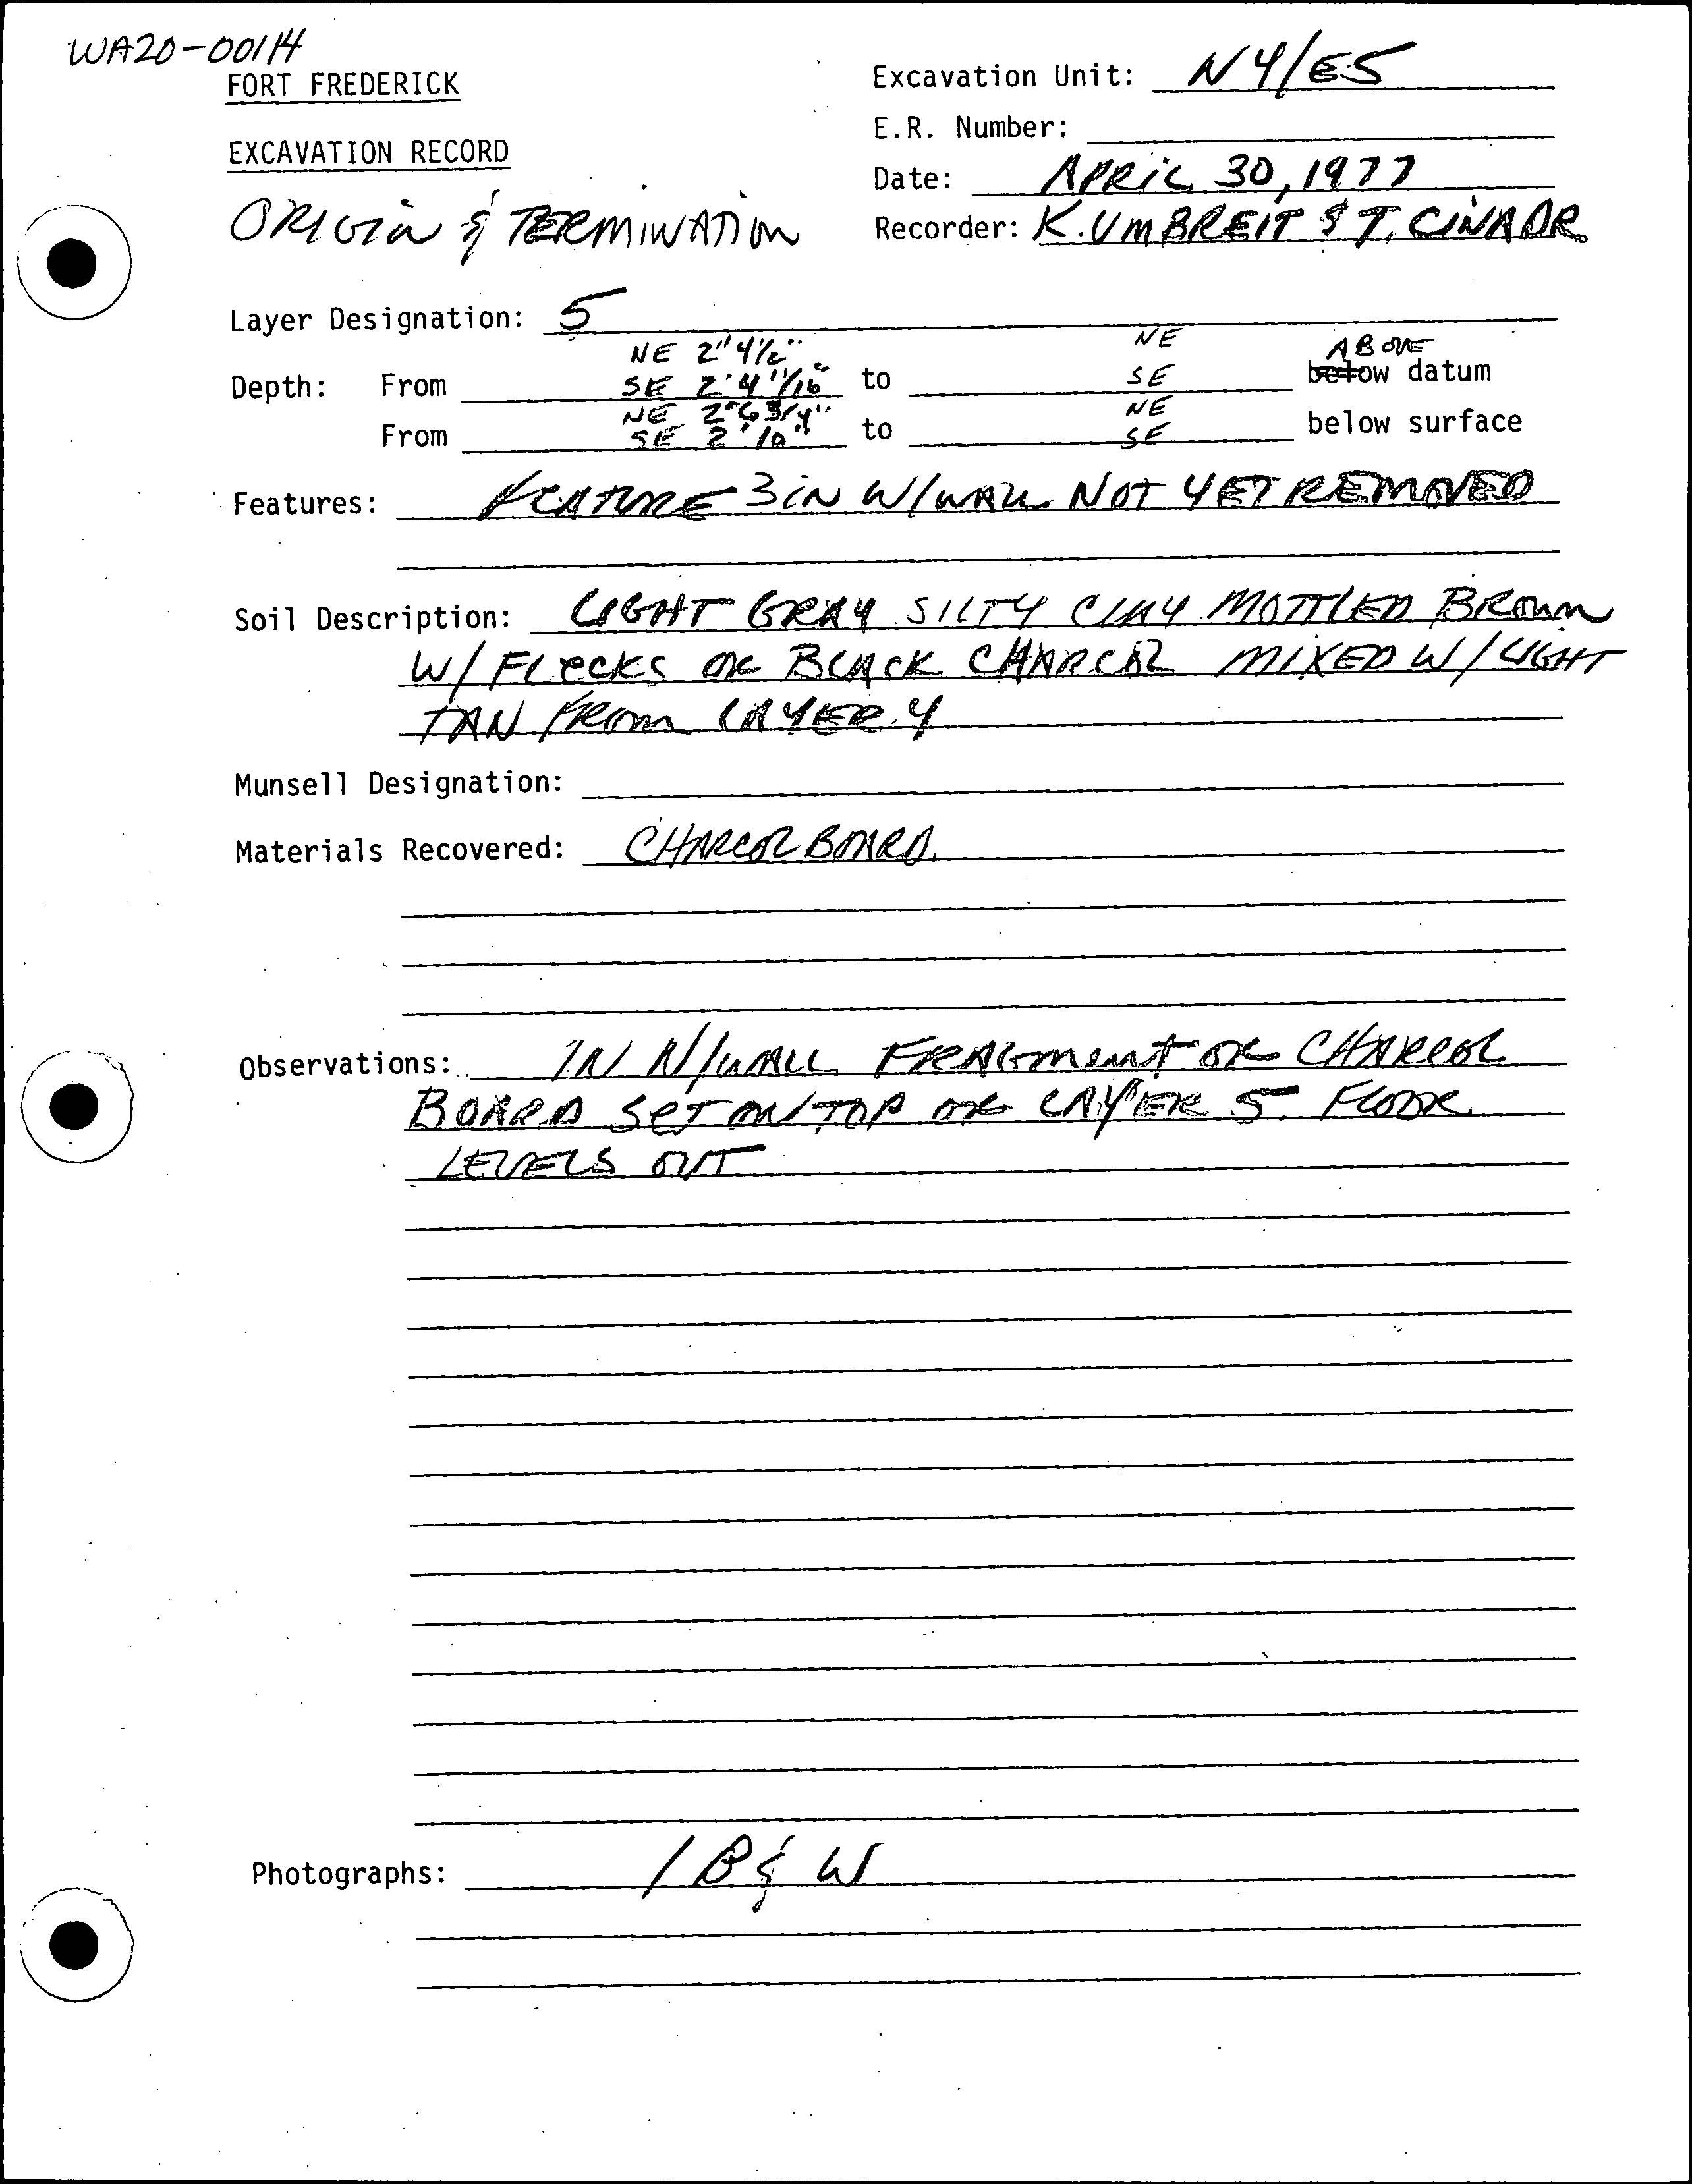 WA20-00114
FORT FREDERICK
EXCAVATION RECORD
ORIGIN & TERMINATION
Excavation Unit: N4/E5
E.R. Number:
Date: APRIL 30, 1977
Recorder: K. UMBREIT & T. CINADR
Layer Designation: 5
NE 2" 4 1/2" NE ABOVE
Depth: From SE 2' 4 11/16" to SE below datum
NE 2" 6 3/4" NE
From SE 2' 10" to SE below surface
Features: FEATURE 3 IN W/WALL NOT YET REMOVED
Soil Description: LIGHT GRAY SILTY CLAY MOTTLED BROWN
W/ FLECKS OF BLACK CHARCOL MIXED W/ LIGHT
TAN FROM LAYER 4
Munsell Designation:
Materials Recovered: CHARCOL BOARD.
Observations: IN N/WALL FRAGMENT OF CHARCOL
BOARD SET ON TOP OF LAYER 5 FLOOR
LEVELS OUT
Photographs: 1 B & W